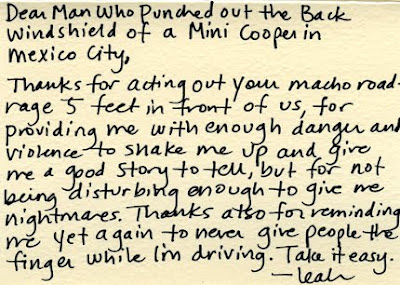 Dear Man Who Punched out the Back
Windshield of a Mini Cooper in
Mexico City,
Thanks for acting out your macho road-
rage 5 feet in front of us, for
providing me with enough danger and
violence to shake me up and give
me a good story to tell, but for not
being disturbing enough to give me
nightmares. Thanks also for reminding
me yet again to never give people the
finger while I'm driving. Take it easy.
—leah